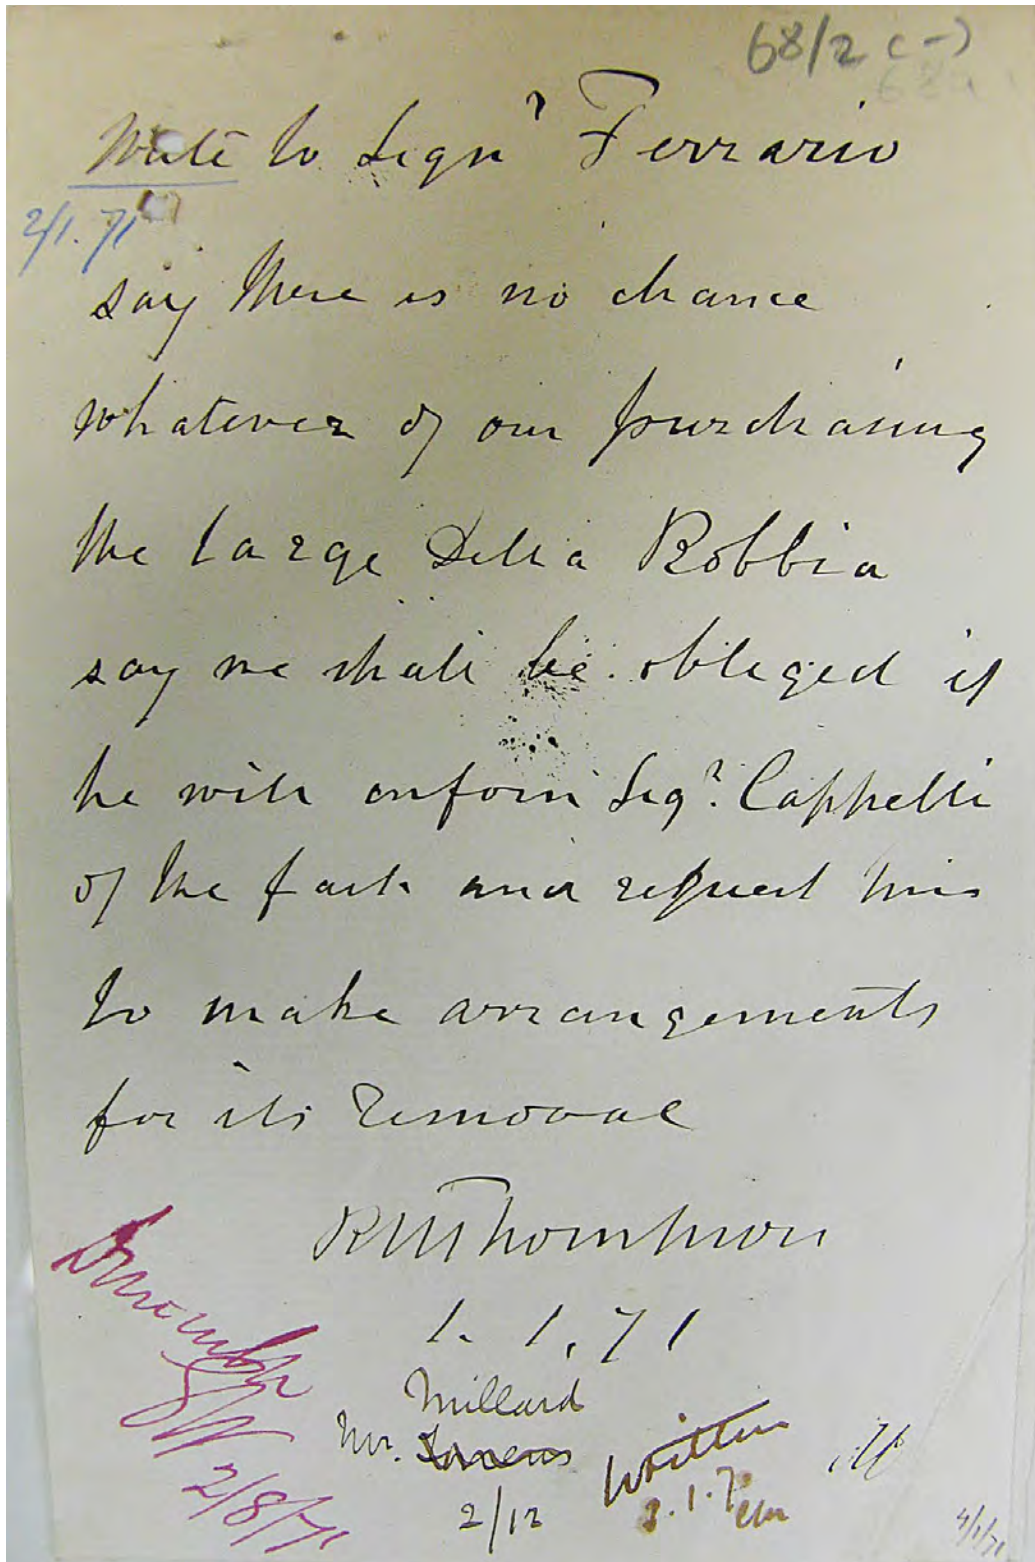 68/2 (-)
Write to Sign^r Ferrario
2/1.71
say there is no chance
whatever of our purchasing
the large Della Robbia
say we shall be obliged if
he will inform Sig^r. Cappelli
of the fact and request him
to make arrangements
for its removal
RMThompson
1.1.71
Millard
Mr.
2/12
Written
2/8/71
4/1/71